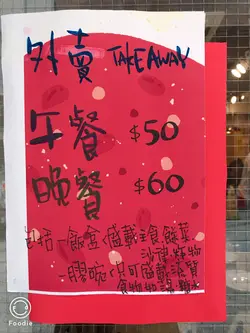 外賣 TAKEAWAY
午餐 $50
晚餐 $60
包括一飯盒<盛載主食餸菜
沙律粉物
一膠碗<只可盛載湯質
食物如湯,糖水
Foodie